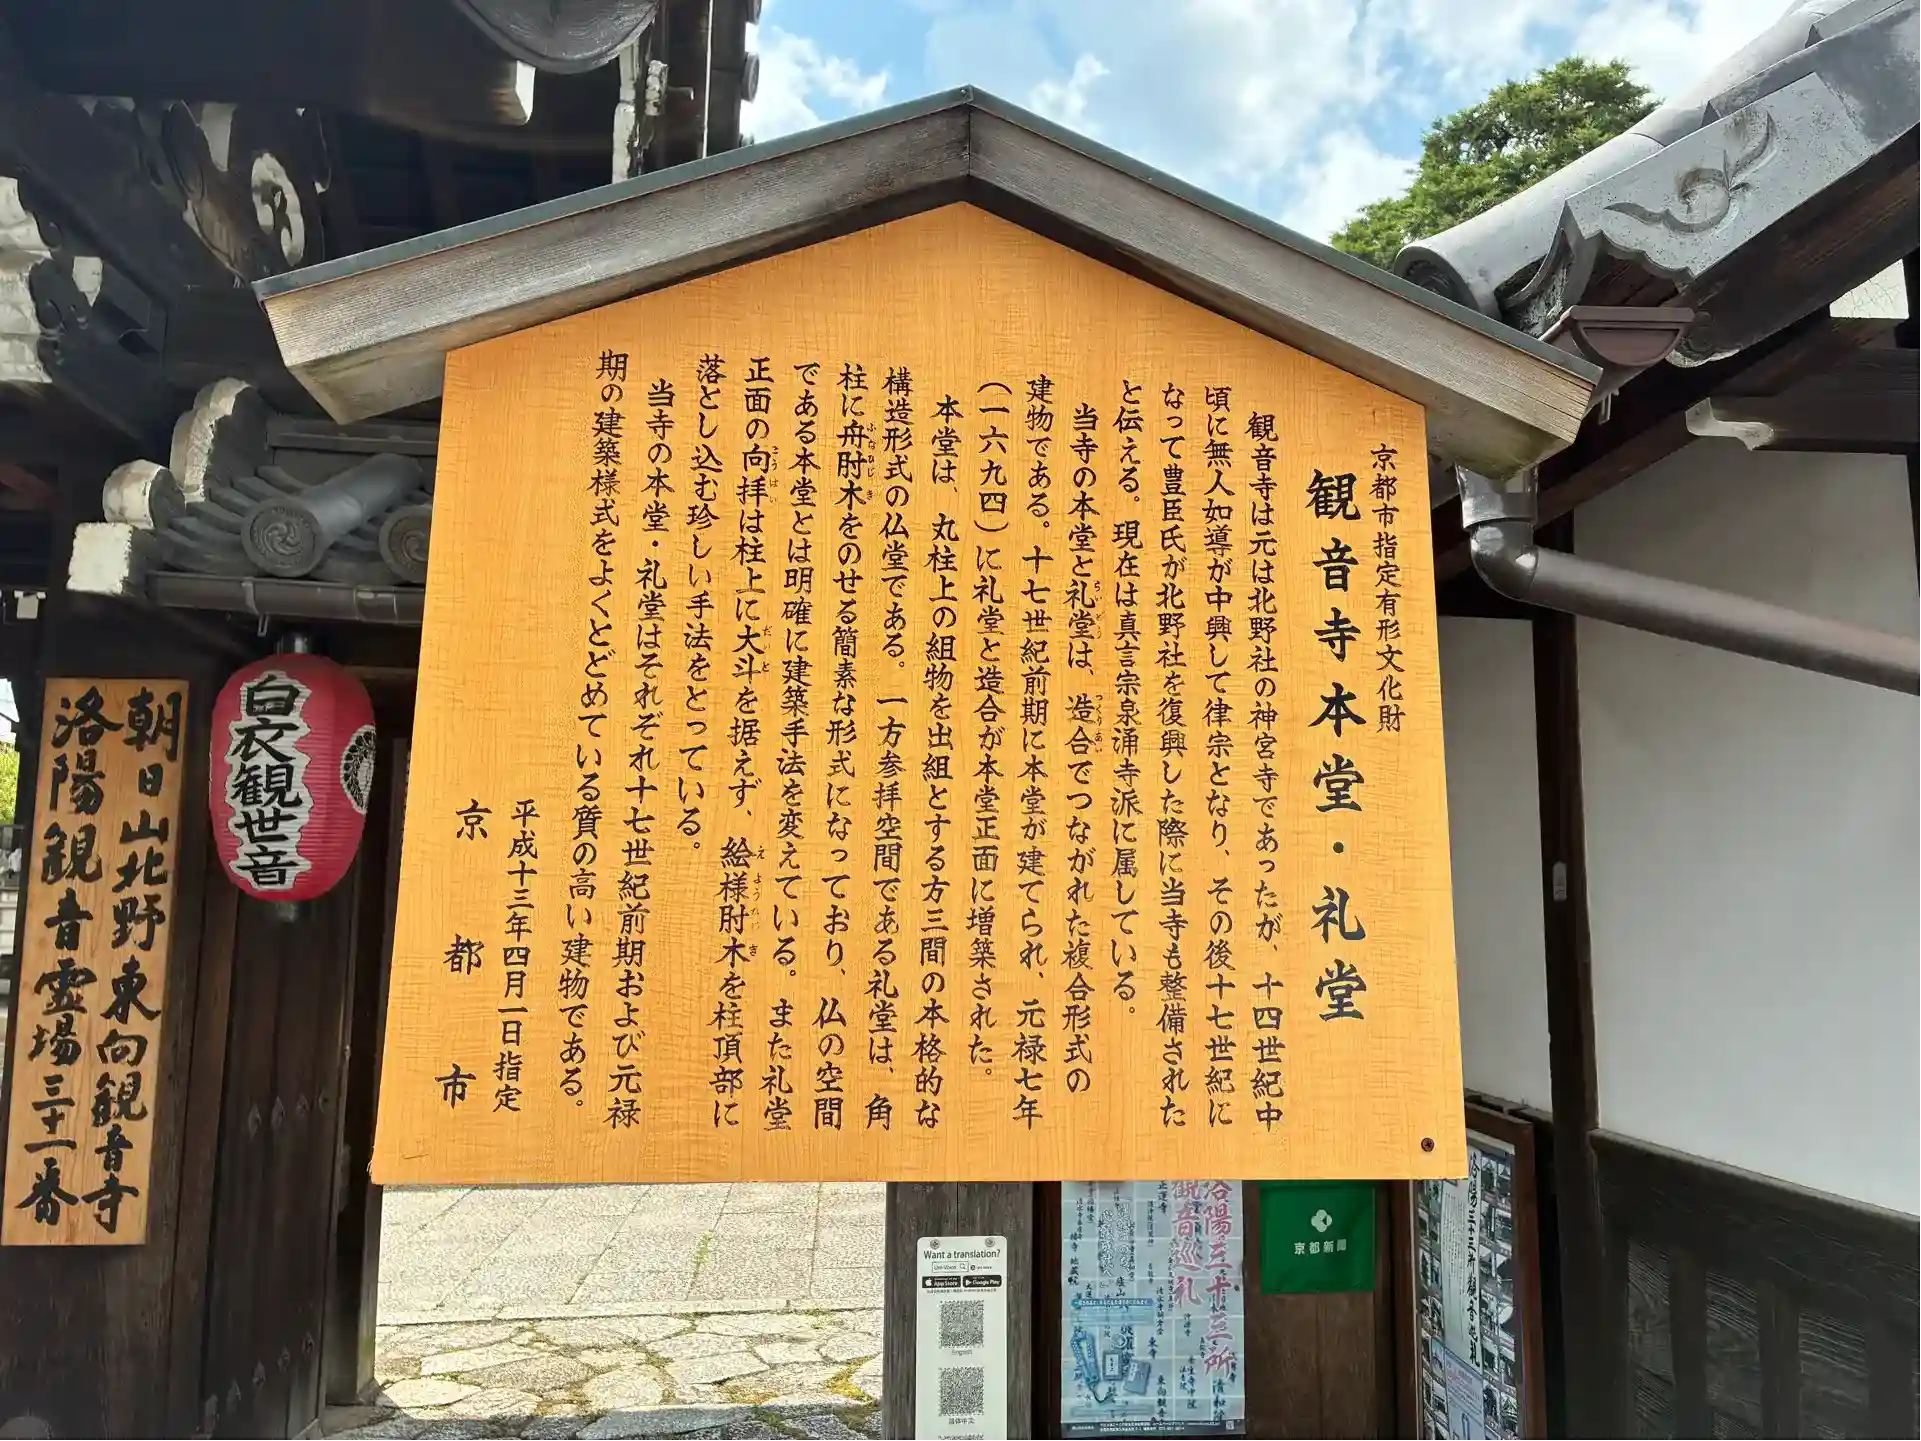 京都市指定有形文化財
観音寺本堂・礼堂
観音寺は元は北野社の神宮寺であったが、十四世紀中
頃に無人如導が中興して律宗となり、その後十七世紀に
なって豊臣氏が北野社を復興した際に当寺も整備された
と伝える。現在は真言宗泉涌寺派に属している。
当寺の本堂と礼堂は、造合でつながれた複合形式の
らいどう
つくりあい
建物である。十七世紀前期に本堂が建てられ、元禄七年
(一六九四)に礼堂と造合が本堂正面に増築された。
本堂は、丸柱上の組物を出組とする方三間の本格的な
構造形式の仏堂である。一方参拝空間である礼堂は、角
柱に舟肘木をのせる簡素な形式になっており、仏の空間
ふなひじき
である本堂とは明確に建築手法を変えている。また礼堂
正面の向拝は柱上に大斗を据えず、絵様肘木を柱頂部に
こうはい
だいと
えようひじき
落とし込む珍しい手法をとっている。
当寺の本堂・礼堂はそれぞれ十七世紀前期および元禄
期の建築様式をよくとどめている質の高い建物である。
平成十三年四月一日指定
京都市
白衣観世音
朝日山北野東向観音寺
洛陽観音霊場三十一番
Want a translation?
Uni-Voice
App Store
Google Play
English
简体中文
洛陽三十三所
観音巡礼
京都新聞
洛陽三十三所観音巡礼